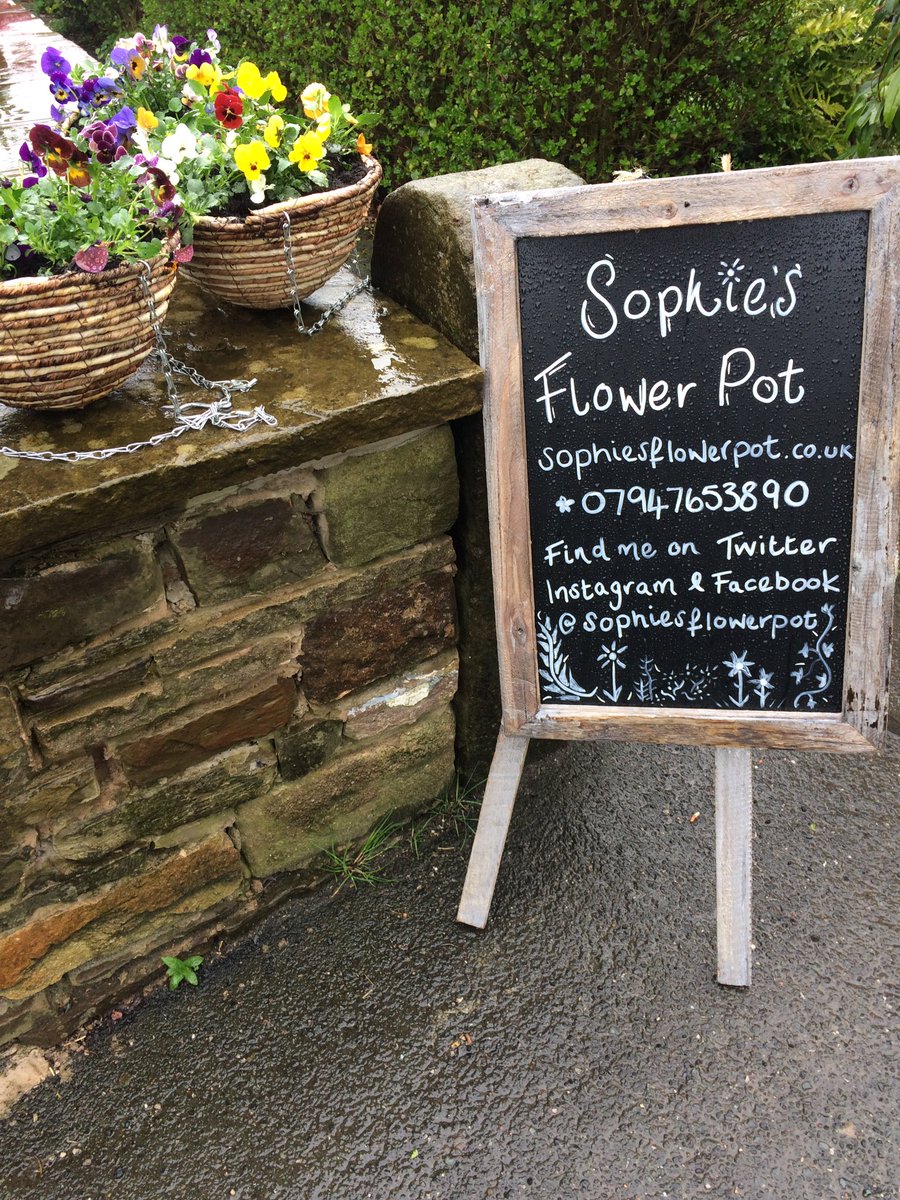 Sophie's
Flower Pot
sophiesflowerpot.co.uk
* 07947653890
Find me on Twitter
Instagram & Facebook
@sophiesflowerpot